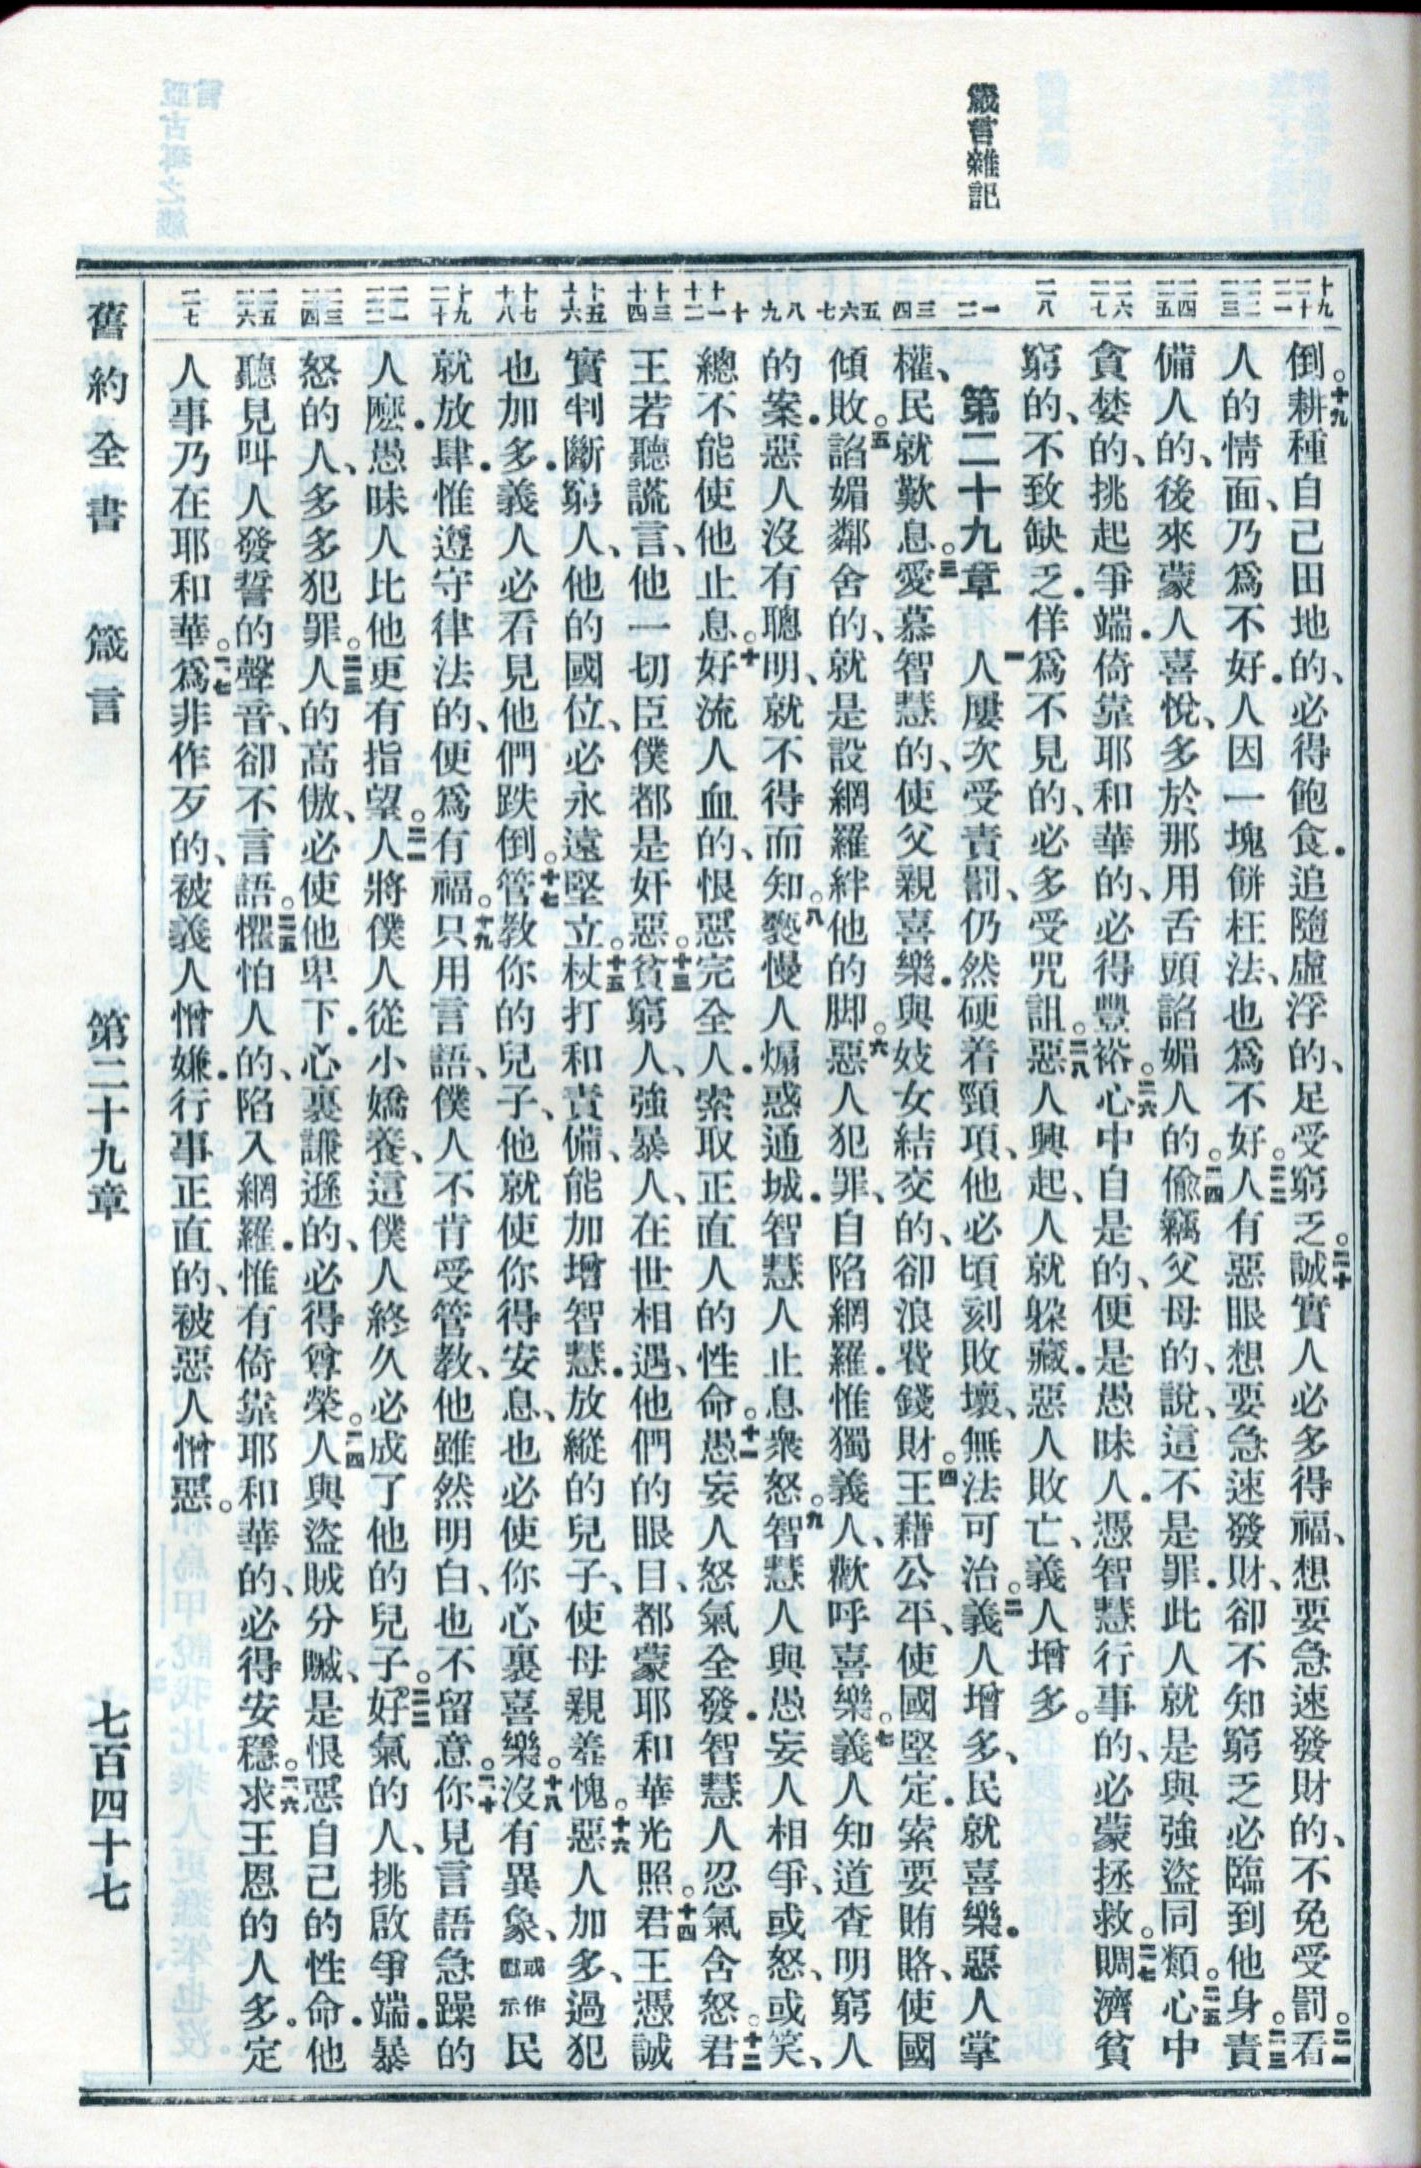 箴言雜記
十九 二十 二一
倒。十九耕種自己田地的、必得飽食．追隨虛浮的、足受窮乏。二十誠實人必多得福、想要急速發財的、不免受罰。二一看
二二 二三
人的情面、乃爲不好．人因一塊餅枉法、也爲不好。二二人有惡眼想要急速發財、卻不知窮乏必臨到他身。二三責
二四 二五
備人的、後來蒙人喜悅、多於那用舌頭諂媚人的。二四偷竊父母的、說、這不是罪．此人就是與強盜同類。二五心中
二六 二七
貪婪的、挑起爭端．倚靠耶和華的、必得豐裕。二六心中自是的、便是愚昧人．憑智慧行事的、必蒙拯救。二七賙濟貧
二八
窮的、不致缺乏．佯爲不見的、必多受咒詛。二八惡人興起、人就躲藏．惡人敗亡、義人增多。
一 二
第二十九章 一人屢次受責罰、仍然硬着頸項、他必頃刻敗壞、無法可治。二義人增多、民就喜樂．惡人掌
三 四
權、民就歎息。三愛慕智慧的、使父親喜樂．與妓女結交的、卻浪費錢財。四王藉公平、使國堅定．索要賄賂、使國
五 六 七
傾敗。五諂媚鄰舍的、就是設網羅絆他的脚。六惡人犯罪、自陷網羅．惟獨義人、歡呼喜樂。七義人知道查明窮人
八 九
的案．惡人沒有聰明、就不得而知。八褻慢人煽惑通城．智慧人止息衆怒。九智慧人與愚妄人相爭、或怒、或笑、
十 十一 十二
總不能使他止息。十好流人血的、恨惡完全人．索取正直人的性命。十一愚妄人怒氣全發．智慧人忍氣含怒。十二君
十三 十四
王若聽謊言、他一切臣僕都是奸惡。十三貧窮人、強暴人、在世相遇、他們的眼目、都蒙耶和華光照。十四君王憑誠
十五 十六
實判斷窮人、他的國位、必永遠堅立。十五杖打和責備、能加增智慧．放縱的兒子、使母親羞愧。十六惡人加多、過犯
十七 十八
也加多．義人必看見他們跌倒。十七管教你的兒子、他就使你得安息、也必使你心裏喜樂。十八沒有異象、或作默示民
十九 二十
就放肆．惟遵守律法的、便爲有福。十九只用言語、僕人不肯受管教、他雖然明白、也不留意。二十你見言語急躁的
二一 二二
人麽．愚昧人比他更有指望。二一人將僕人從小嬌養、這僕人終久必成了他的兒子。二二好氣的人、挑啟爭端．暴
二三 二四
怒的人、多多犯罪。二三人的高傲、必使他卑下．心裏謙遜的、必得尊榮。二四人與盜賊分贓、是恨惡自己的性命．他
二五 二六
聽見叫人發誓的聲音、卻不言語。二五懼怕人的、陷入網羅．惟有倚靠耶和華的、必得安穩。二六求王恩的人多．定
二七
人事乃在耶和華。二七爲非作歹的、被義人憎嫌．行事正直的、被惡人憎惡。
舊約全書 箴言 第二十九章 七百四十七